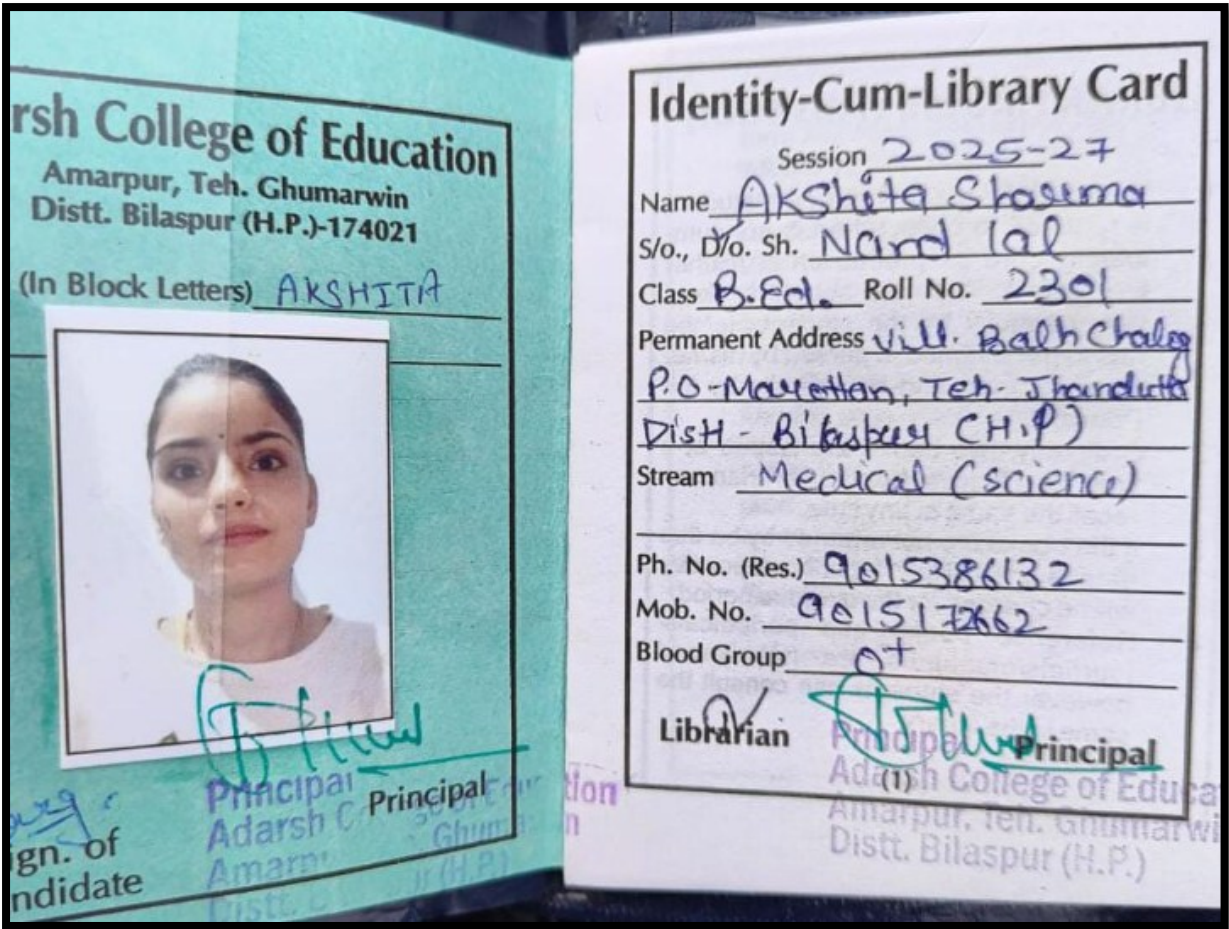 rsh College of Education
Amarpur, Teh. Ghumarwin
Distt. Bilaspur (H.P.)-174021
(In Block Letters) AKSHITA
Principal
Principal
Adarsh C
Ghum
Amar
(H.P.)
Distt.
ign. of
ndidate
tion
n
Identity-Cum-Library Card
Session 2025-27
Name Akshita Sharma
S/o., D/o. Sh. Nand lal
Class B.Ed. Roll No. 2301
Permanent Address Vill. Balh Chalog
P.O-Marottan, Teh- Jhandutta
Distt - Bilaspur (H.P)
Stream Medical (science)
Ph. No. (Res.) 9015386132
Mob. No. 9015172662
Blood Group O+
Librarian Principal
(1)
Principal
Adarsh College of Educa
Amarpur, Teh. Ghumarwi
Distt. Bilaspur (H.P.)